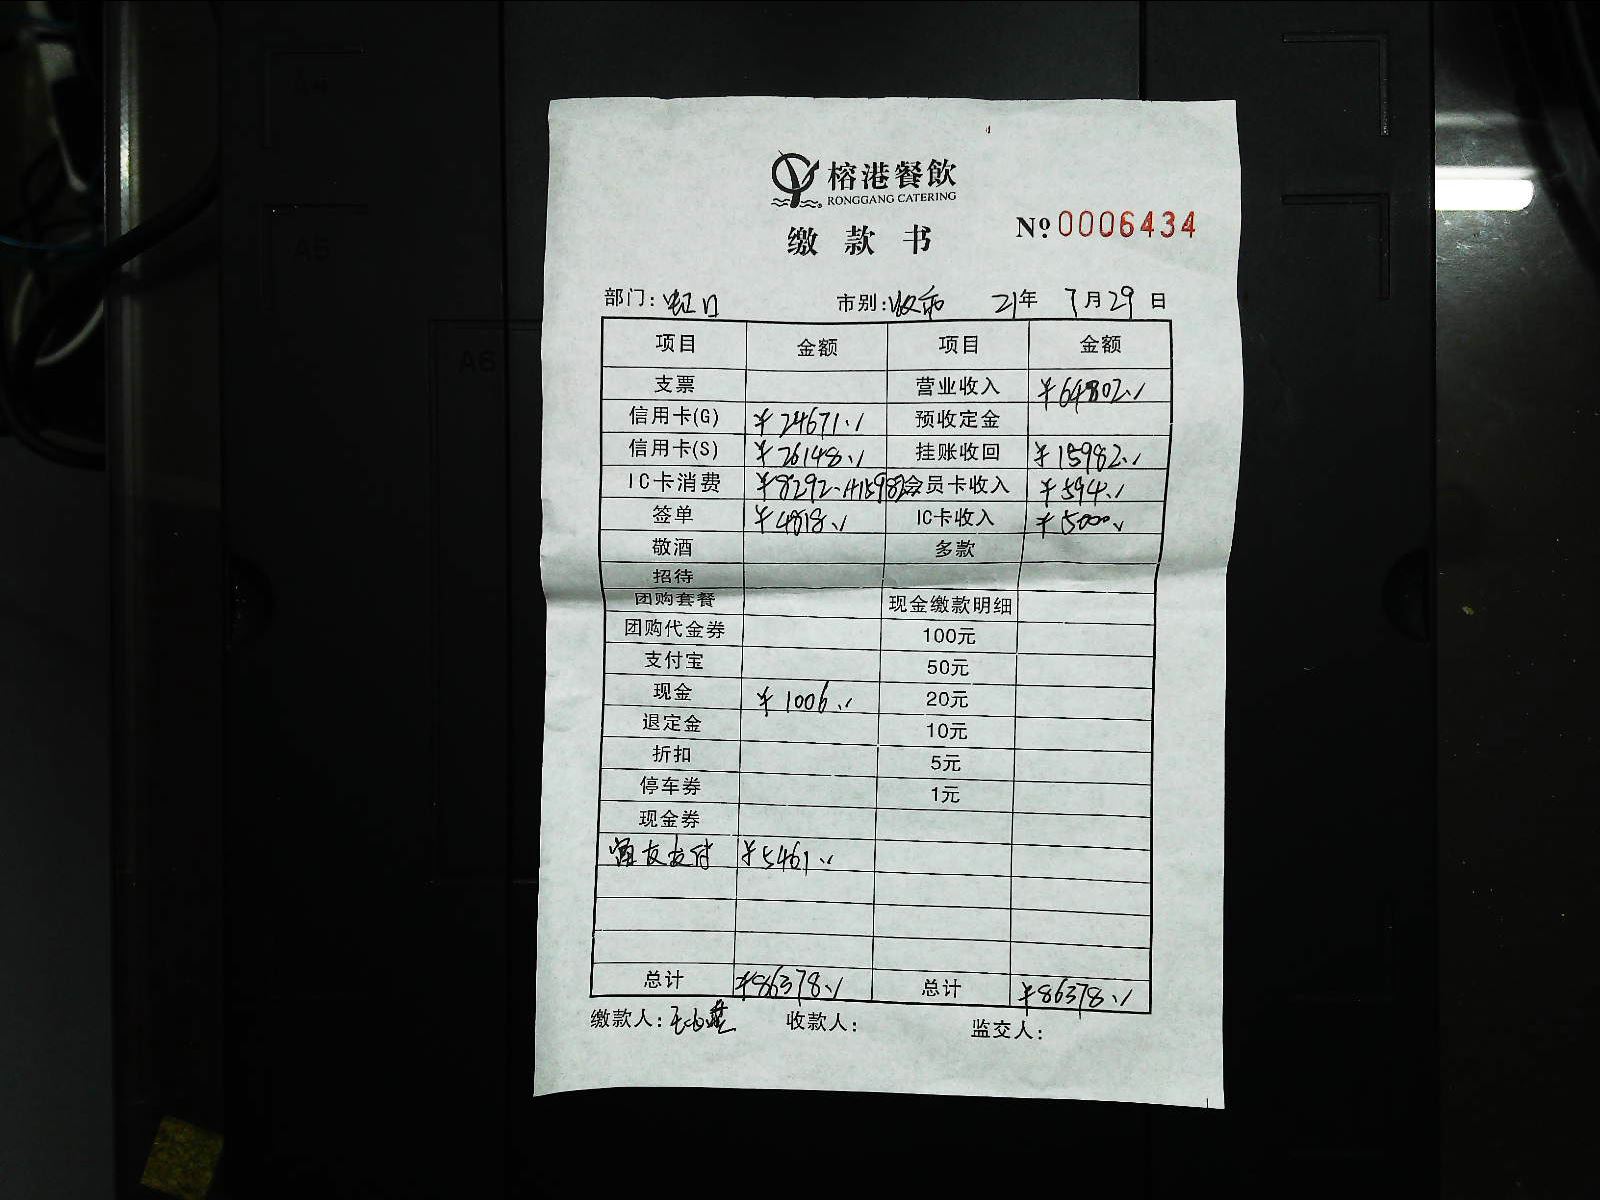 榕港餐飲
RONGGANG CATERING
缴款书
№ 0006434
部门: 虹口 市别: 收市 21年 7月29日
项目 金额 项目 金额
支票 营业收入 ¥64802./
信用卡(G) ¥24671./ 预收定金
信用卡(S) ¥26148./ 挂账收回 ¥15982./
IC卡消费 ¥8292./+15982 会员卡收入 ¥594./
签单 ¥4818./ IC卡收入 ¥5000./
敬酒 多款
招待
团购套餐 现金缴款明细
团购代金券 100元
支付宝 50元
现金 ¥1006./ 20元
退定金 10元
折扣 5元
停车券 1元
现金券
富友支付 ¥5461./
总计 ¥86378./ 总计 ¥86378./
缴款人: 收款人: 监交人:
A5
A6